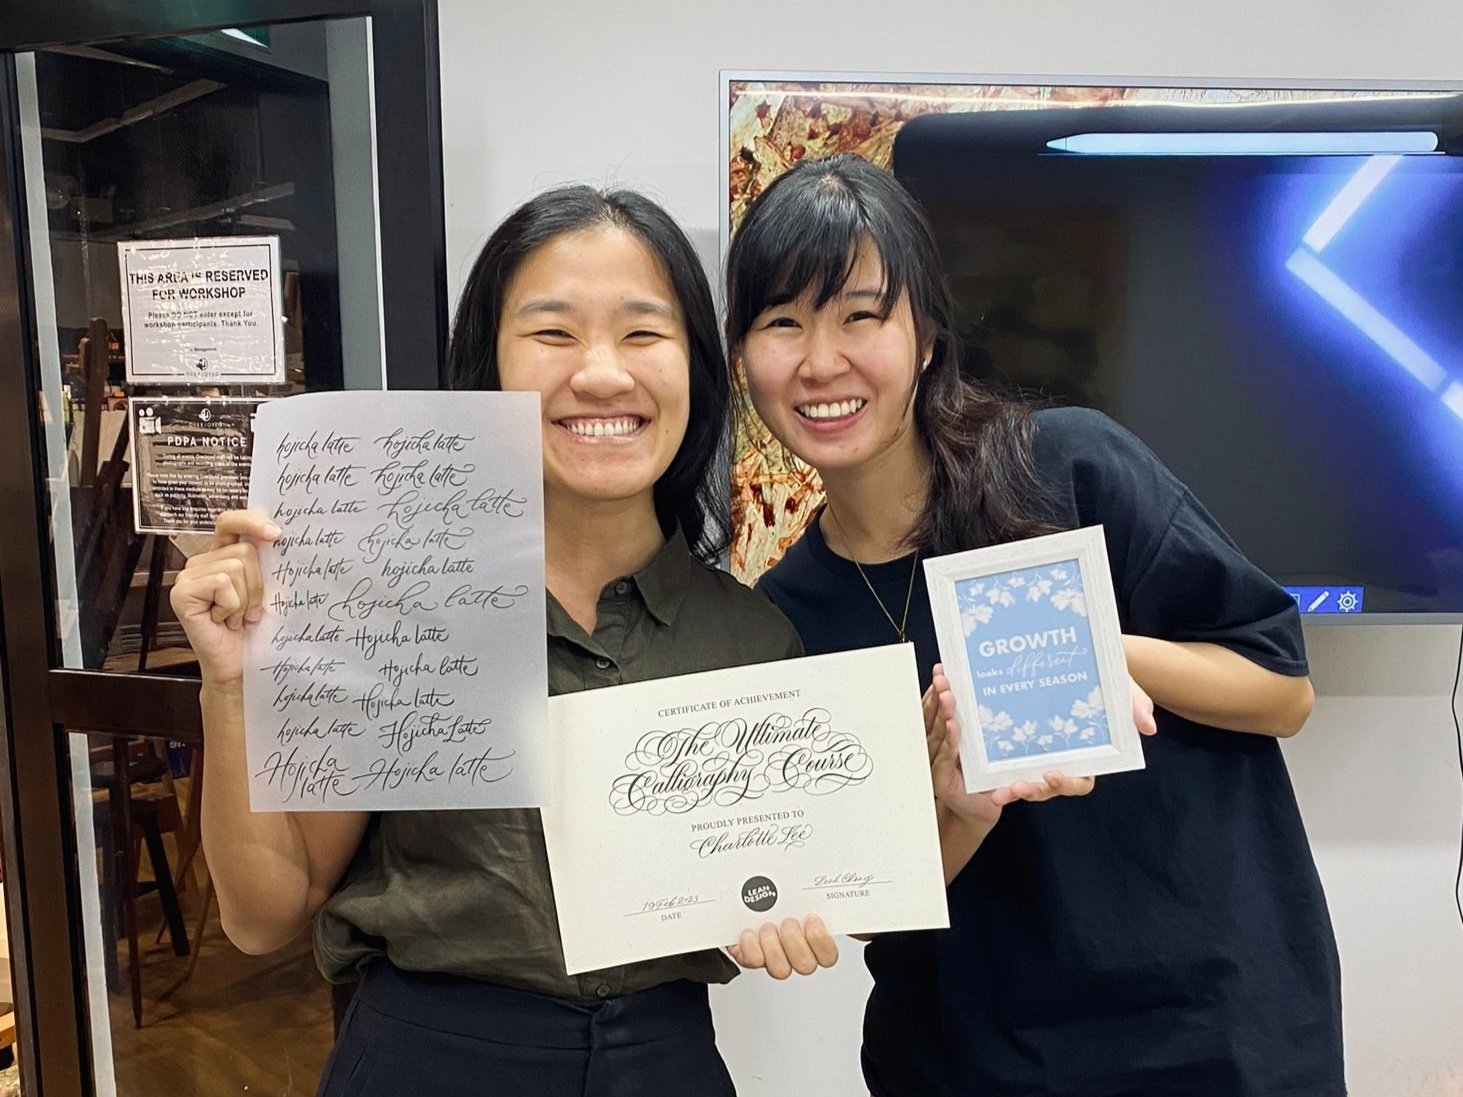 THIS AREA IS RESERVED
FOR WORKSHOP
Please DO NOT enter except for
workshop participants. Thank You.
Management
OVERJOYED
OVERJOYED
PDPA NOTICE
hojicha latte hojicha latte
hojicha latte hojicha latte
hojicha latte hojicha latte
hojicha latte hojicha latte
Hojicha latte hojicha latte
Hojicha latte hojicha latte
hojicha latte Hojicha latte
Hojicha latte Hojicha latte
hojicha latte Hojicha latte
hojicha latte Hojicha Latte
Hojicha latte Hojicha latte
CERTIFICATE OF ACHIEVEMENT
The Ultimate
Calligraphy Course
PROUDLY PRESENTED TO
Charlotte Lee
19 Feb 2023
DATE
LEAH
DESIGN
Leah Chong
SIGNATURE
GROWTH
looks different
IN EVERY SEASON